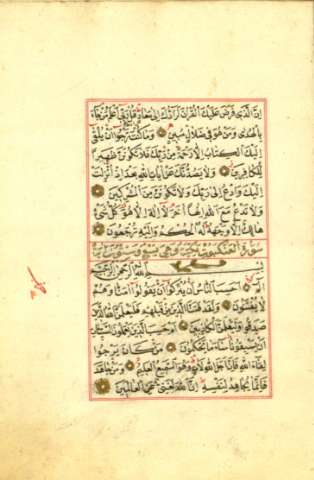 ان الذى فرض عليك القران لرادك الى معاد قل ربى اعلم من جاء
بالهدى ومن هو فى ضلال مبين وما كنت ترجوا ان يلقى
اليك الكتاب الا رحمة من ربك فلا تكونن ظهيرا
للكافرين ولا يصدنك عن ايات الله بعد اذ انزلت
اليك وادع الى ربك ولا تكونن من المشركين
ولا تدع مع الله الها اخر لا اله الا هو كل شئ
هالك الا وجهه له الحكم واليه ترجعون
سورة العنكبوت مكية وهى تسع وستون اية
بسم الله الرحمن الرحيم
الم احسب الناس ان يتركوا ان يقولوا امنا وهم
لا يفتنون ولقد فتنا الذين من قبلهم فليعلمن الله الذين
صدقوا وليعلمن الكاذبين ام حسب الذين يعملون السيئات
ان يسبقونا ساء ما يحكمون من كان يرجوا
لقاء الله فان اجل الله لات وهو السميع العليم ومن جاهد
فانما يجاهد لنفسه ان الله لغنى عن العالمين